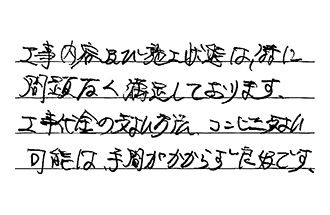 工事内容及び施工状態は、特に
問題なく満足しております。
工事代金の支払い方法、コンビニ支払い
可能は、手間がかからず良好です。